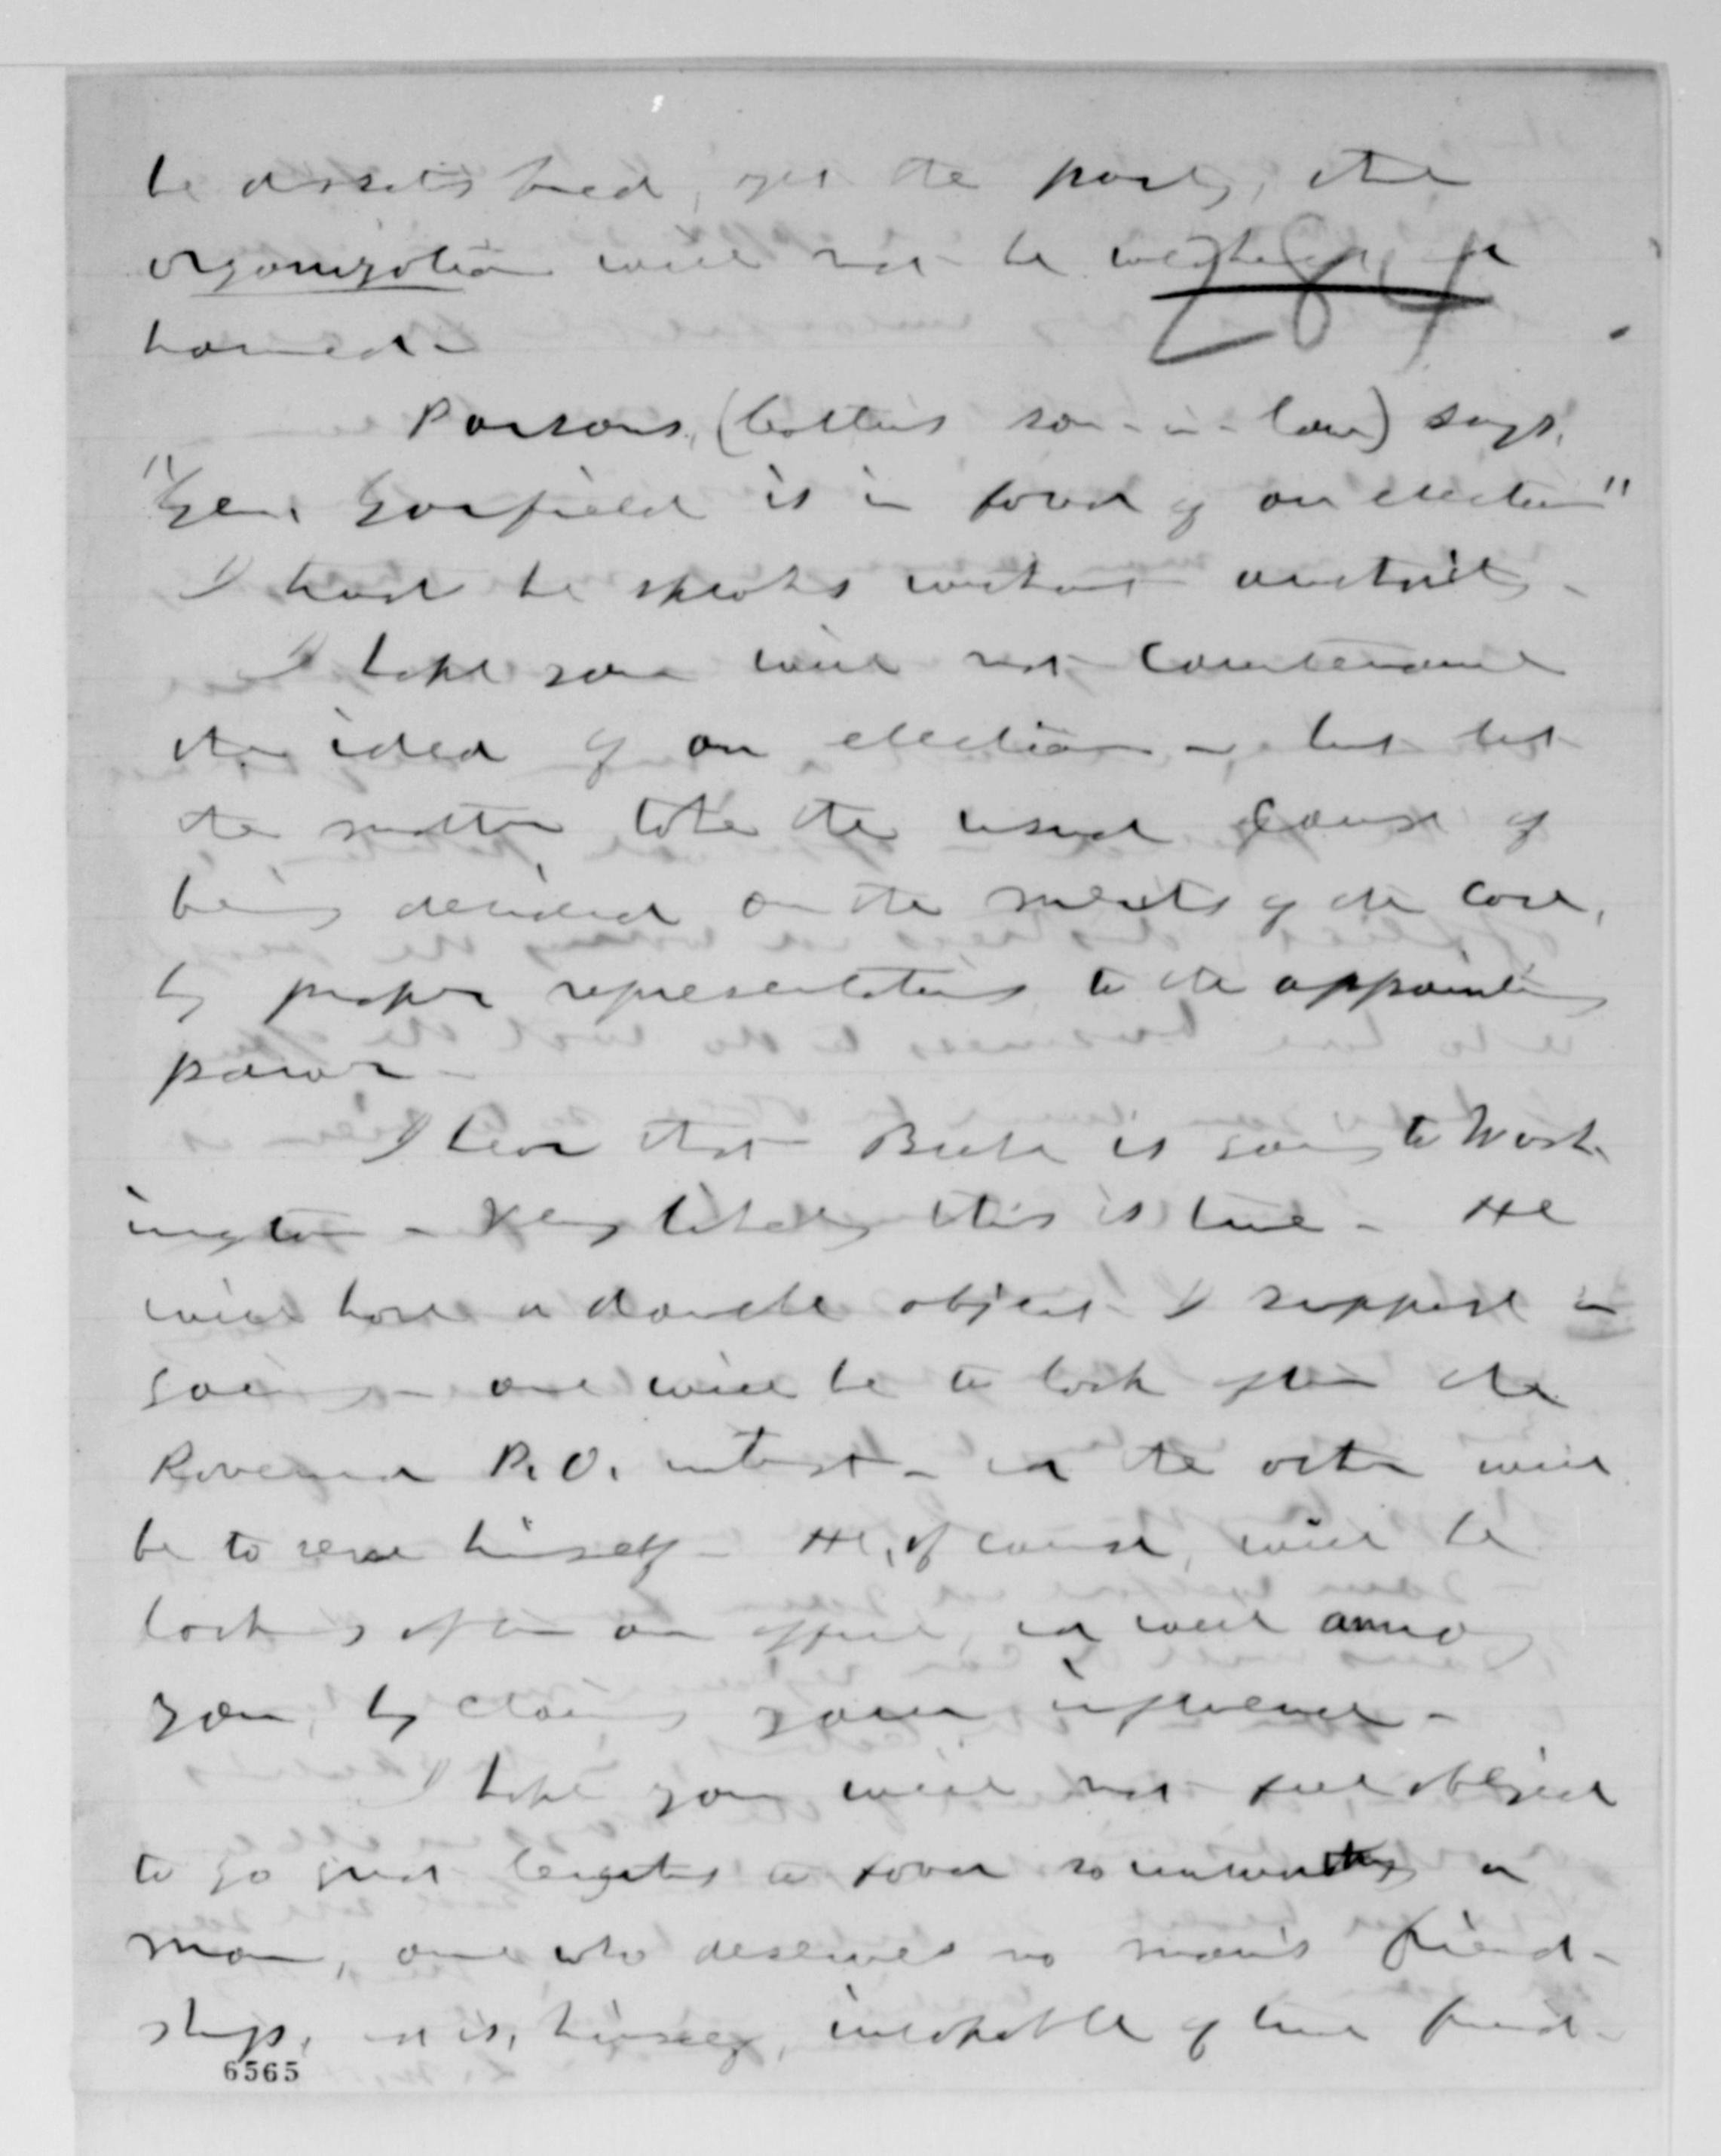 be dissatisfied, yet the party, the
organization will not be weakened or
284
harmed -
Parsons, (Cottins son-in-law) says,
"Gen. Garfield is in favor of an election"
I trust he speaks without authority -
I hope you will not countenance
the idea of an election -, but let
the matter take the usual course of
being decided on the merits of the case,
by proper representations to the appointing
power -
I hear that Beebe is going to Wash-
ington - Very likely this is true - He
will have a double object I suppose in
going - one will be to look after the
Ravenna P.O. interest - and the other will
be to serve himself - He, of course, will be
looking after an office, and will annoy
you, by claiming your influence -
I hope you will not feel obliged
to go great lengths to favor so unworthy a
man, one who deserves no man's friend-
ships, and is, himself, incapable of true friend-
6565